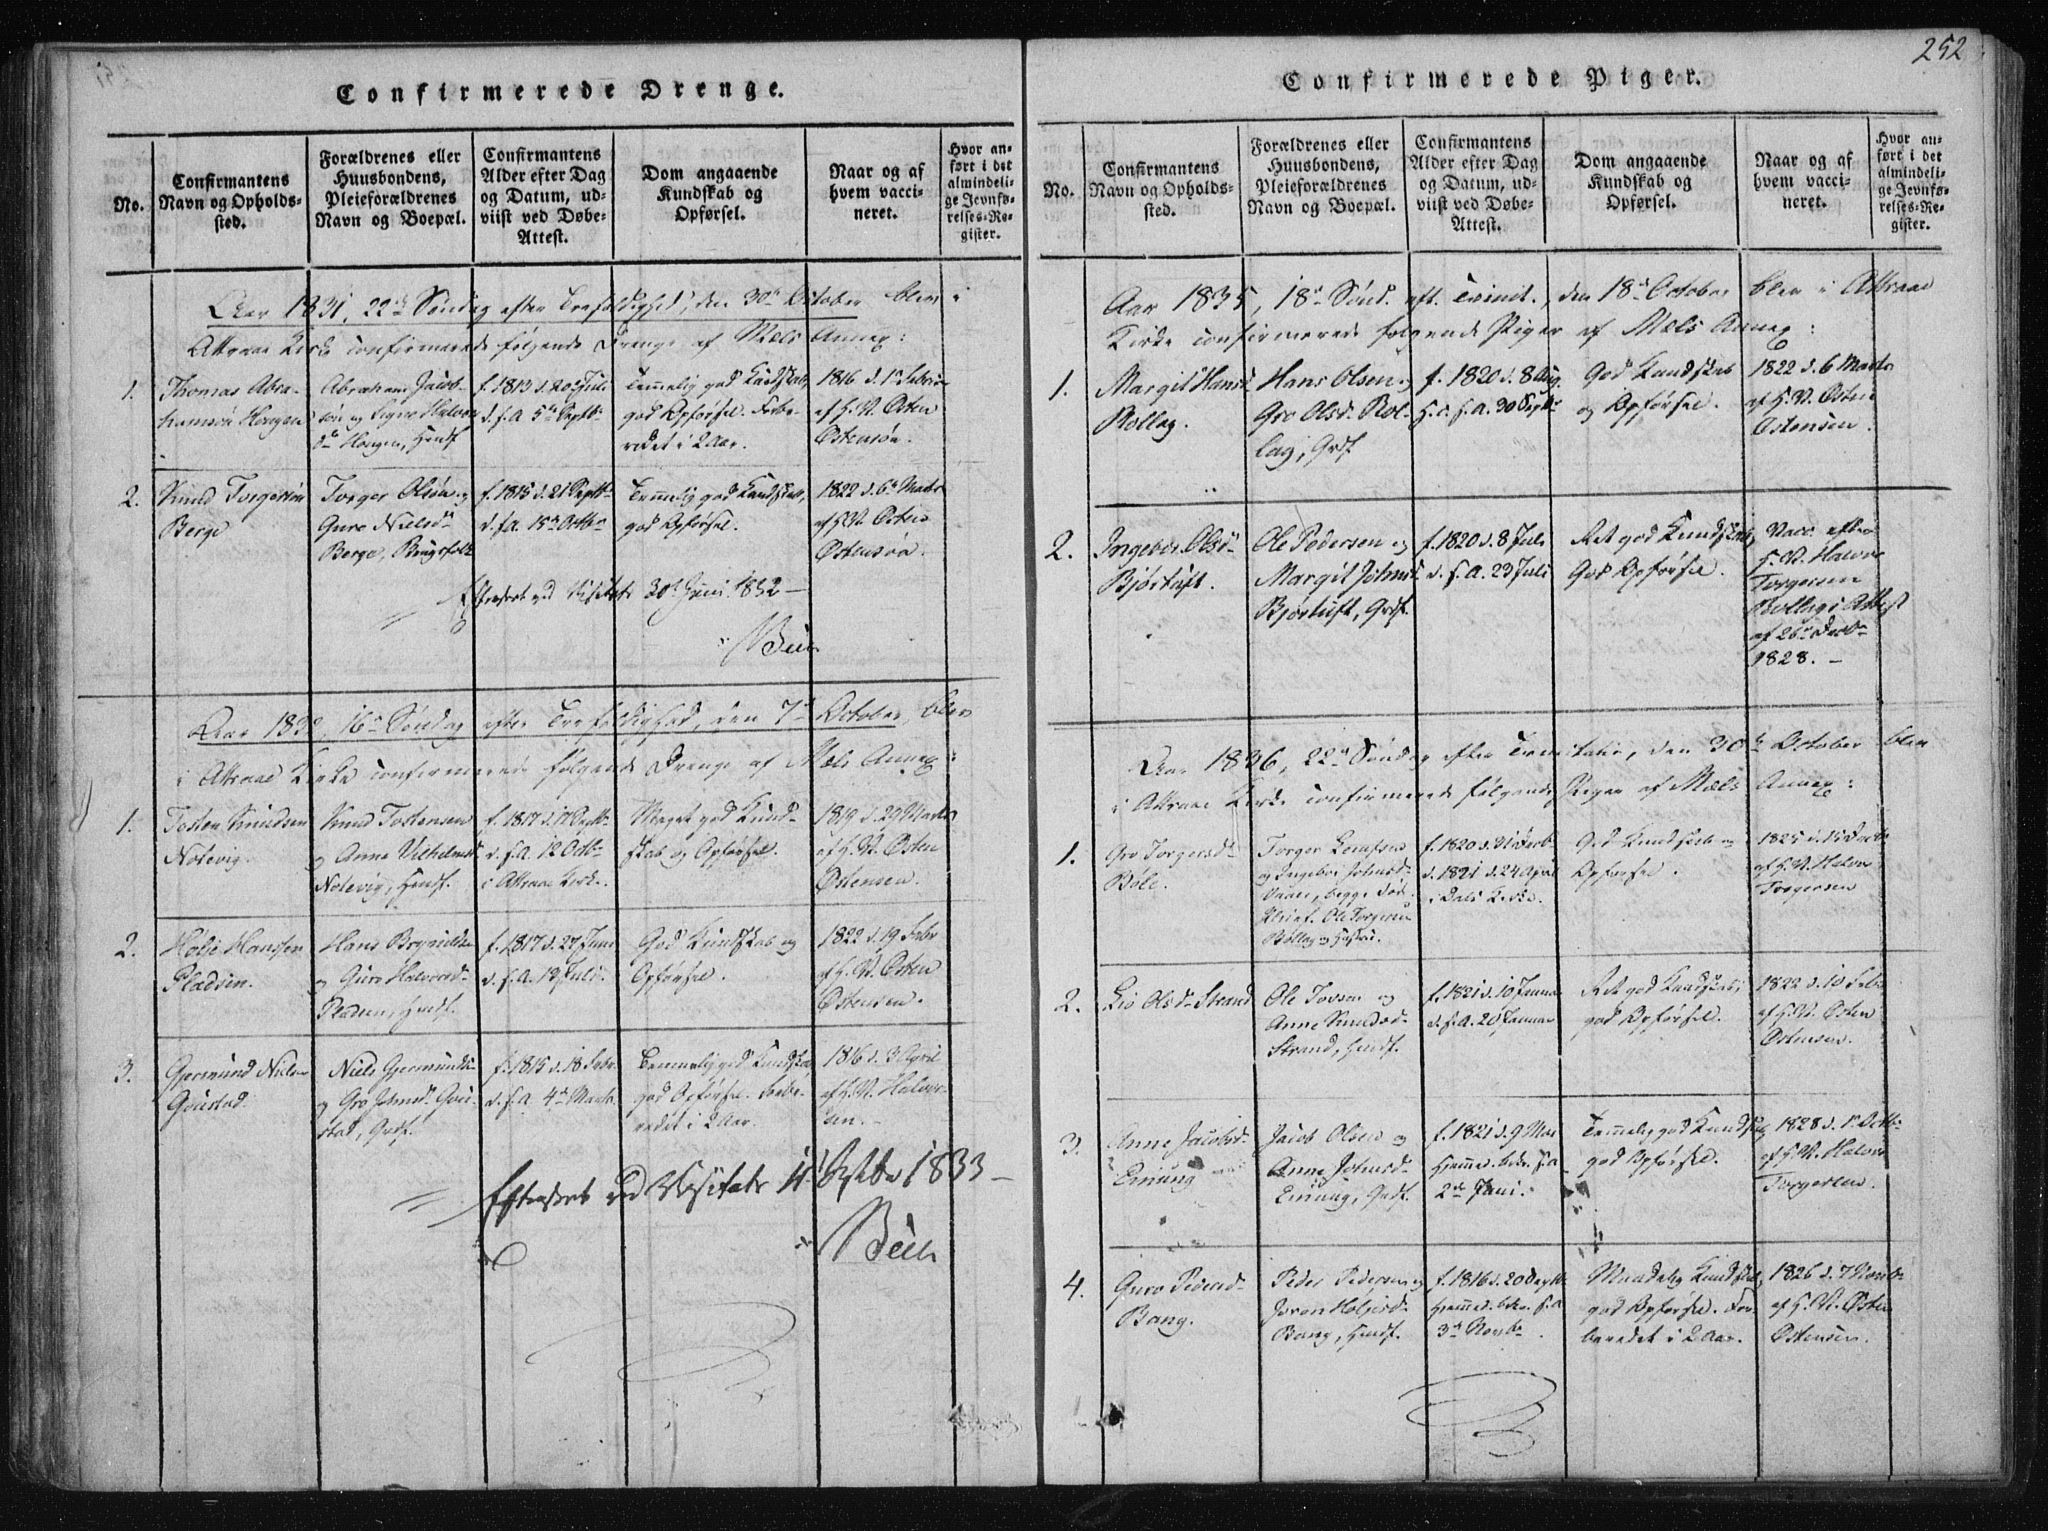 Confirmerede Drenge.
No.
Confirmantens
Navn og Opholds-
sted.
Forældrenes eller
Huusbondens,
Pleieforældrenes
Navn og Boepæl.
Confirmantens
Alder efter Dag
og Datum, ud-
viist ved Døbe-
Attest.
Dom angaaende
Kundskab og
Opførsel.
Naar og af
hvem vacci-
neret.
Hvor an-
ført i det
almindeli-
ge Jevnfø-
relses-Re-
gister.
Aar 1831, 22de Søndag efter Trefoldighed, den 30te October blev i
Attraae Kirke confirmerede følgende Drenge af Mæls Annex:
1.
Thomas Abra-
hamsøn Hougen
Abraham Jacob-
søn og Sigrid Halvors-
dr Hougen, Huusf.
f. 1813 d. 20de Juli
d. s. A. 5te Septbr
Temmelig god Kundskab,
god Opførsel. Forbe-
redet i 2 Aar.
1816 d. 1e Febr.
af H. N. Østen
Østensøn.
2.
Knud Torgersøn
Berge
Torger Olsøn og
Guro Nielsdr
Berge, Brugsfolk
f. 1815 d. 21 Septbr
d. s. A. 15de Octbr
Temmelig god Kundskab,
god Opførsel.
1822 d. 6te Marts
af H. N. Østen
Østensøn.
Efterseet ved Visitats 30te Juni 1832 —
Aar 1832, 16de Søndag efter Trefoldighed, den 7de October, blev
i Attraae Kirke confirmerede følgende Drenge af Mæls Annex:
1.
Tosten Knudsen
Notevig.
Knud Tostensen
og Anne Vilhelmsd.
Notevig, Huusf.
f. 1817 d. 17 Septbr
d. s. A. 12 Octbr
i Attraae Kirke.
Meget god Kund-
skab og Opførsel.
1819 d. 29 Marts
af H. N. Østen
Østensen.
2.
Holje Hansen
Pladsen.
Hans Brynildsen
og Guro Halvorsd.
Pladsen, Huusf.
f. 1817 d. 27 Juni
d. s. A. 13 Juli.
God Kundskab og
Opførsel.
1822 d. 19 Febr
af H. N. Østen
Østensen.
3.
Gjermund Nielsen
Goustad.
Niels Gjermunds.
og Gro Johnsd. Gou-
stad, Grdf.
f. 1815 d. 18 Febr.
d. s. A. 4de Marts.
Temmelig god Kundskab,
god Opførsel. Forbe-
redet i 2 Aar.
1816 d. 3 April
af H. N. Halvor-
sen.
Efterseet ved Visitats 11te Septbr 1833 —
252
Confirmerede Piger.
No.
Confirmantens
Navn og Opholds-
sted.
Forældrenes eller
Huusbondens,
Pleieforældrenes
Navn og Boepæl.
Confirmantens
Alder efter Dag
og Datum, ud-
viist ved Døbe-
Attest.
Dom angaaende
Kundskab og
Opførsel.
Naar og af
hvem vacci-
neret.
Hvor an-
ført i det
almindeli-
ge Jevnfø-
relses-Re-
gister.
Aar 1835, 18de Sønd. eft. Trinit., den 18de October blev i Attraae
Kirke confirmerede følgende Piger af Mæls Annex:
1.
Margit Hansd.
Rollag.
Hans Olsen og
Gro Olsd. Rol-
lag, Grdf.
f. 1820 d. 8 Aug.
d. s. A. 30 Septbr
God Kundskab
og Opførsel.
1822 d. 6 Marts
af H. N. Østen
Østensen.
2.
Ingebor Olsdr
Bjørtuft.
Ole Pedersen og
Margit Johnsd.
Bjørtuft, Grdf.
f. 1820 d. 8 Juli
d. s. A. 23 Juli
Ret god Kundskab,
God Opførsel.
Vacc. efter
H. N. Halvor
Torgersen
Bøllegs Attest
af 26de Decbr
1828. —
Aar 1836, 22de Søndag efter Trinitatis, den 30te October blev
i Attraae Kirke confirmerede følgende Piger af Mæls Annex:
1.
Gro Torgersdr
Bøle.
Torger
og Ingebor Johnsd.
Vaaer, begge døde.
Ole Torgersen
Bøllag og Hustru.
f. 1820 d. 31 Decb.
d. 1821 d. 24 April
i Dals Kirke.
God Kundskab og
Opførsel.
1825 d. 15 Decbr
af H. N. Halvor
Torgersen
2.
Liv Olsdr Strand
Ole Tovsen og
Anne Knudsd.
Strand, Huusf.
f. 1821 d. 10 Januar
d. s. A. 20 Januar
Ret god Kundskab,
god Opførsel.
1822 d. 10 Febr
af H. N. Østen
Østensen.
3.
Anne Jacobsd.
Einung
Jacob Olsen og
Anne Johnsd.
Einung, Grdf.
f. 1821 d. 9 Mai
Hjemmed. bekr. s. A.
2de Juni.
Temmelig god Kundskab,
god Opførsel.
1828 d. 1e Octbr
af H. N. Halvor
Torgersen.
4.
Guro Pedersd.
Bang.
Peder Pedersen og
Joron Holjesd.
Bang, Huusf.
f. 1816 d. 20de Septbr
Hjemmed. bekr. s. A.
3de Novbr
Maadelig Kundskab,
god Opførsel. For-
beredet i 2 Aar.
1826 d. 7 Novbr
af H. N. Østen
Østensen.